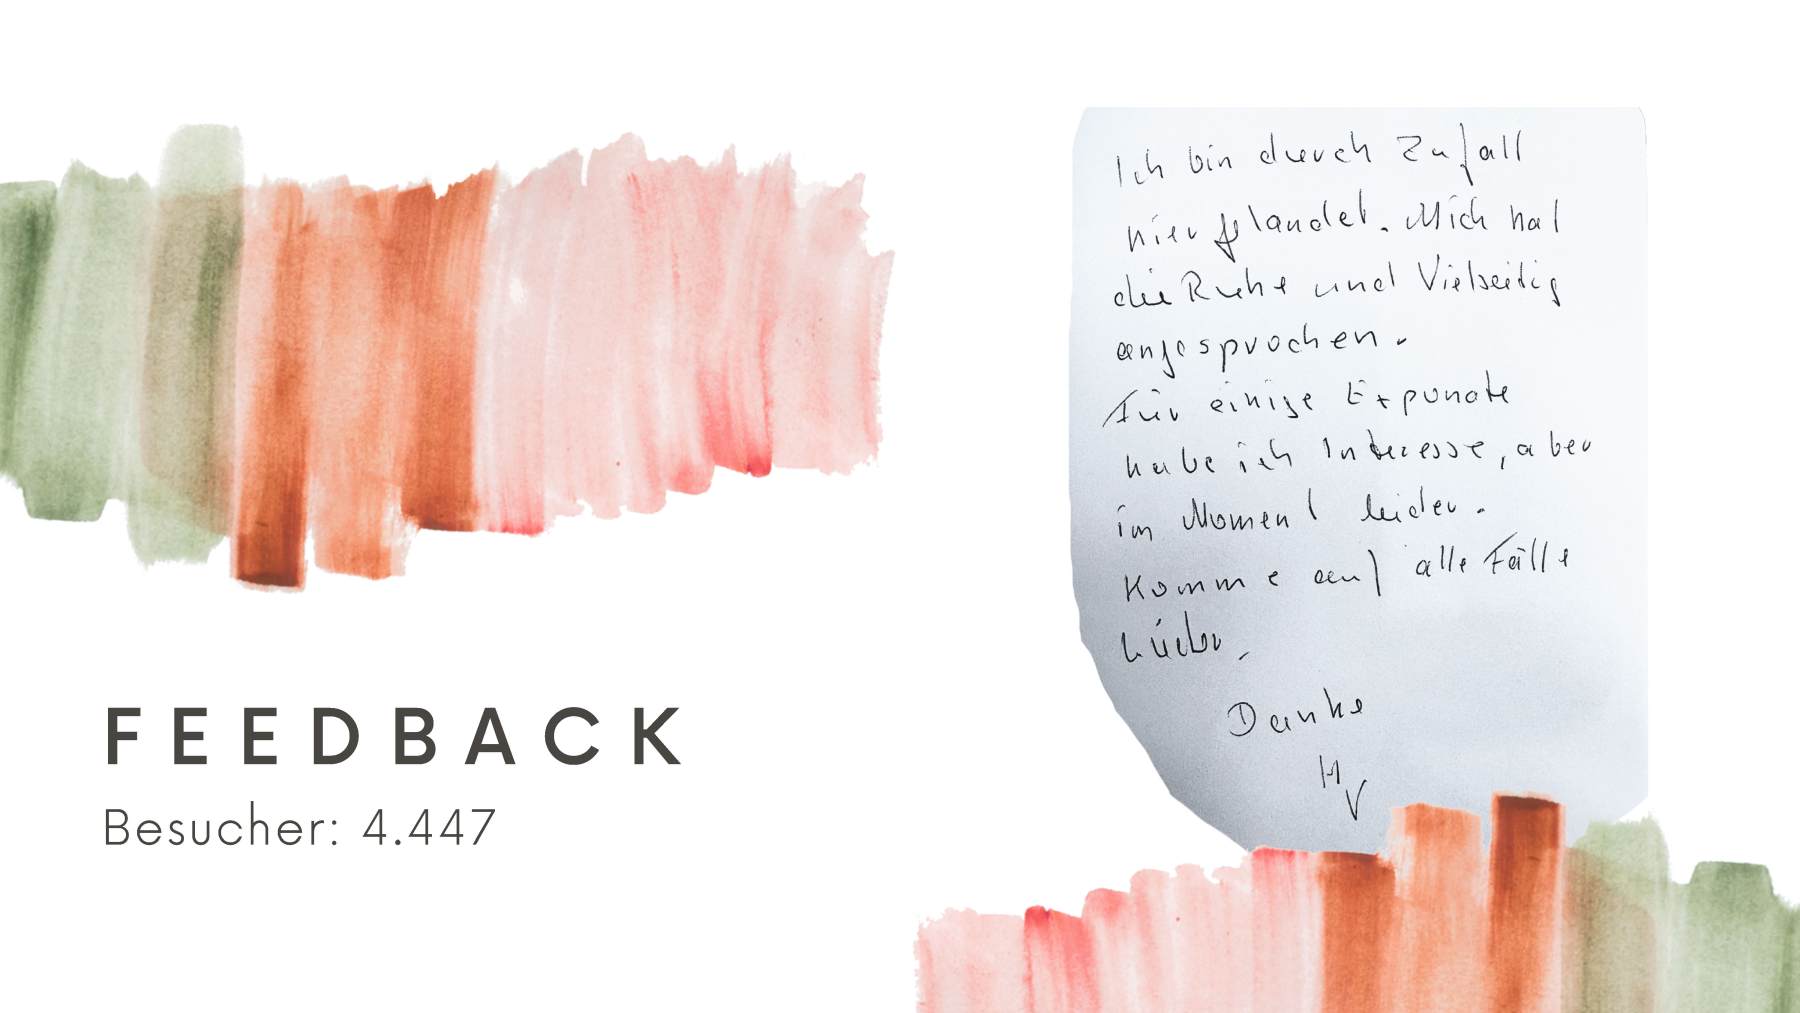 FEEDBACK
Besucher: 4.447
Ich bin durch Zufall
hier gelandet. Mich hat
die Ruhe und Vielseitig
angesprochen.
Für einige Exponate
habe ich Interesse, aber
im Moment leider.
Komme auf alle Fälle
wieder.
Danke
HV